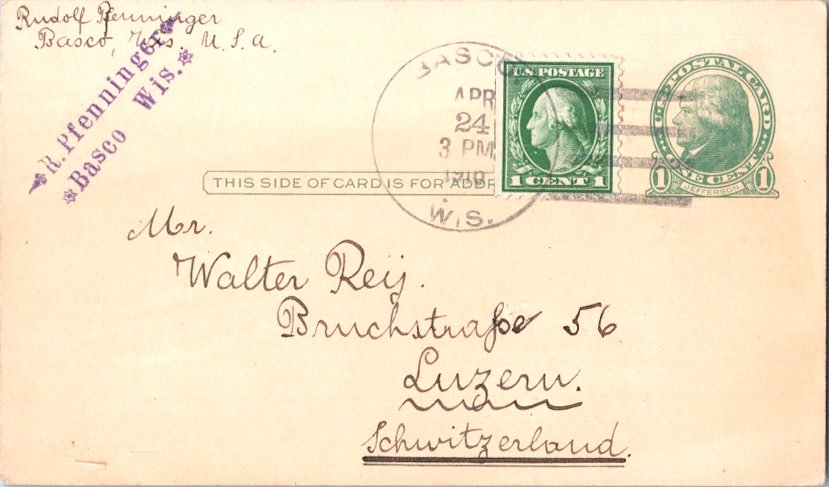 Rudolf Pfenninger
Basco, Wis. U.S.a.
R. Pfenninger
Basco Wis.
BASCO
APR
24
3 PM
WIS.
U.S. POSTAGE
1 CENT 1
U.S. POSTAL CARD
1 ONE CENT 1
JEFFERSON
THIS SIDE OF CARD IS FOR ADDR
Mr.
Walter Reij.
Bruchstraße 56
Luzern.
Schwitzerland.